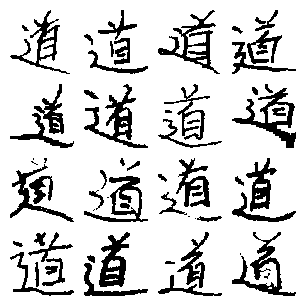 道道道道
道道道道
道道道道
道道道道